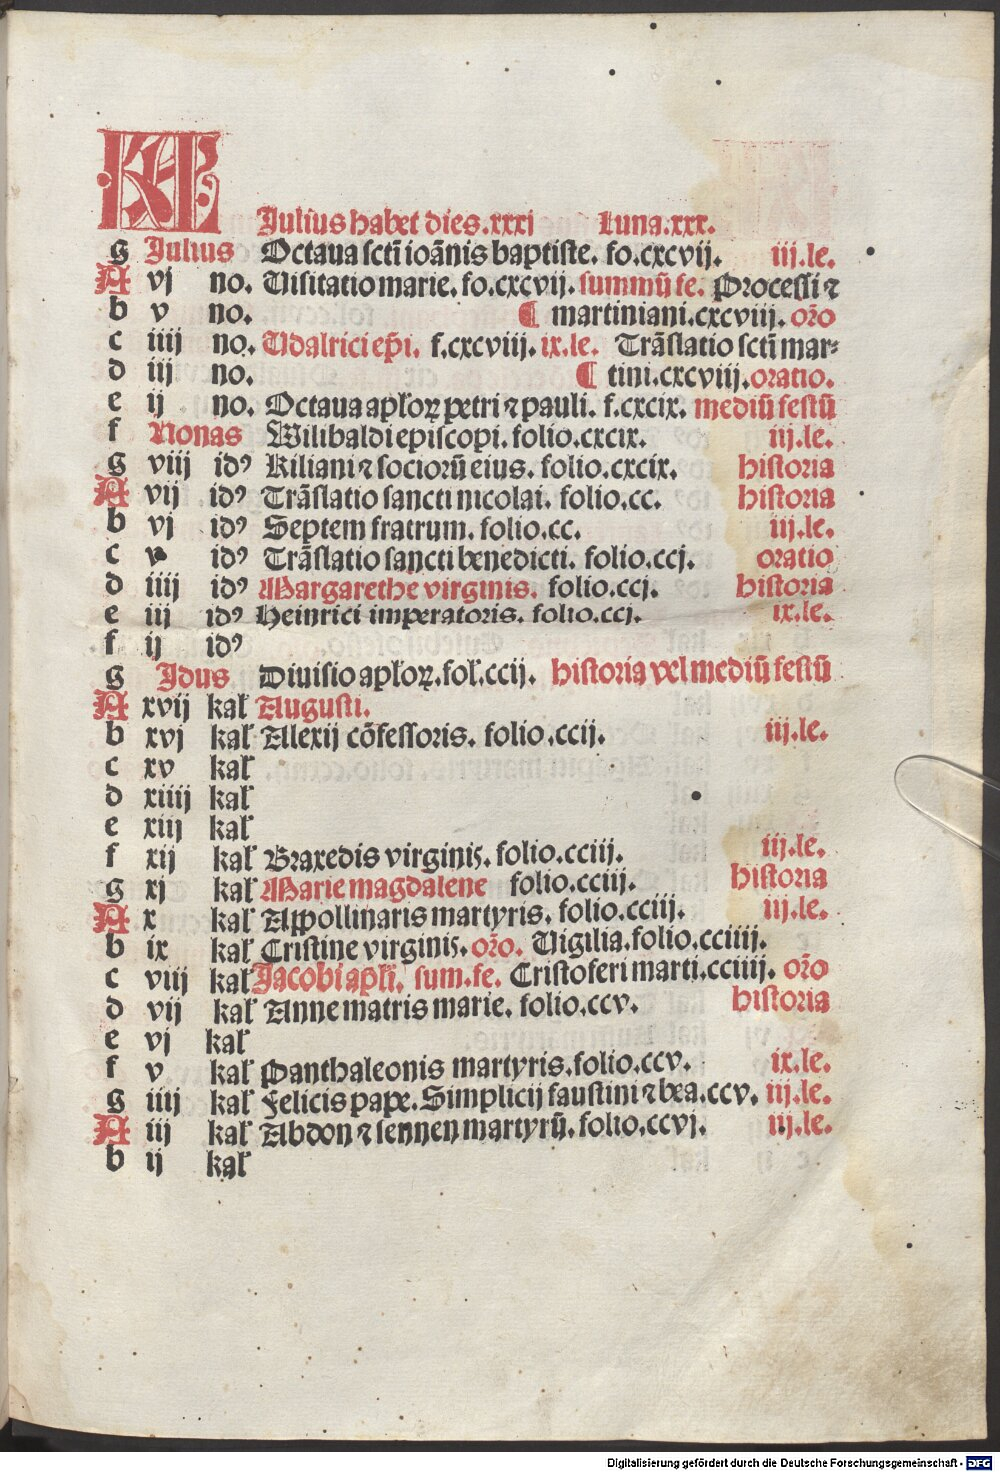 KL
Julius habet dies.xxxj Luna.xxx.
g Julius Octaua sctĩ ioãnis baptiste. fo.cxcvij. iij.le.
A vj no. Uisitatio marie. fo.cxcvij. summũ fe. Processi ⁊
b v no. ¶ martiniani.cxcviij. oro̅
c iiij no. Udalrici ep̅i. f.cxcviij. ix.le. Trãslatio sctĩ mar⸗
d iij no. ¶ tini.cxcviij.oratio.
e ij no. Octaua apłoꝝ petri ⁊ pauli. f.cxcix. mediũ festũ
f Nonas Wilibaldi episcopi. folio.cxcix. iij.le.
g viij idꝰ Kiliani ⁊ sociorũ eius. folio.cxcix. historia
A vij idꝰ Trãslatio sancti nicolai. folio.cc. historia
b vj idꝰ Septem fratrum. folio.cc. iij.le.
c v idꝰ Trãslatio sancti benedicti. folio.ccj. oratio
d iiij idꝰ Margarethe virginis. folio.ccj. historia
e iij idꝰ Heinrici imperatoris. folio.ccj. ix.le.
f ij idꝰ
g Idus Diuisio apłoꝝ.fol.ccij. historia vel mediũ festũ
A xvij kał Augusti.
b xvj kał Alexij cõfessoris. folio.ccij. iij.le.
c xv kał
d xiiij kał
e xiij kał
f xij kał Braxedis virginis. folio.cciij. iij.le.
g xj kał Marie magdalene folio.cciij. historia
A x kał Appollinaris martyris. folio.cciij. iij.le.
b ix kał Cristine virginis. oro̅. Uigilia.folio.cciiij.
c viij kał Jacobi apłi. sum.fe. Cristoferi marti.cciiij. oro̅
d vij kał Anne matris marie. folio.ccv. historia
e vj kał
f v kał Panthaleonis martyris.folio.ccv. ix.le.
g iiij kał Felicis pape. Simplicij faustini ⁊ bea.ccv. iij.le.
A iij kał Abdon ⁊ sennen martyrũ. folio.ccvj. iij.le.
b ij kał
Digitalisierung gefördert durch die Deutsche Forschungsgemeinschaft - DFG